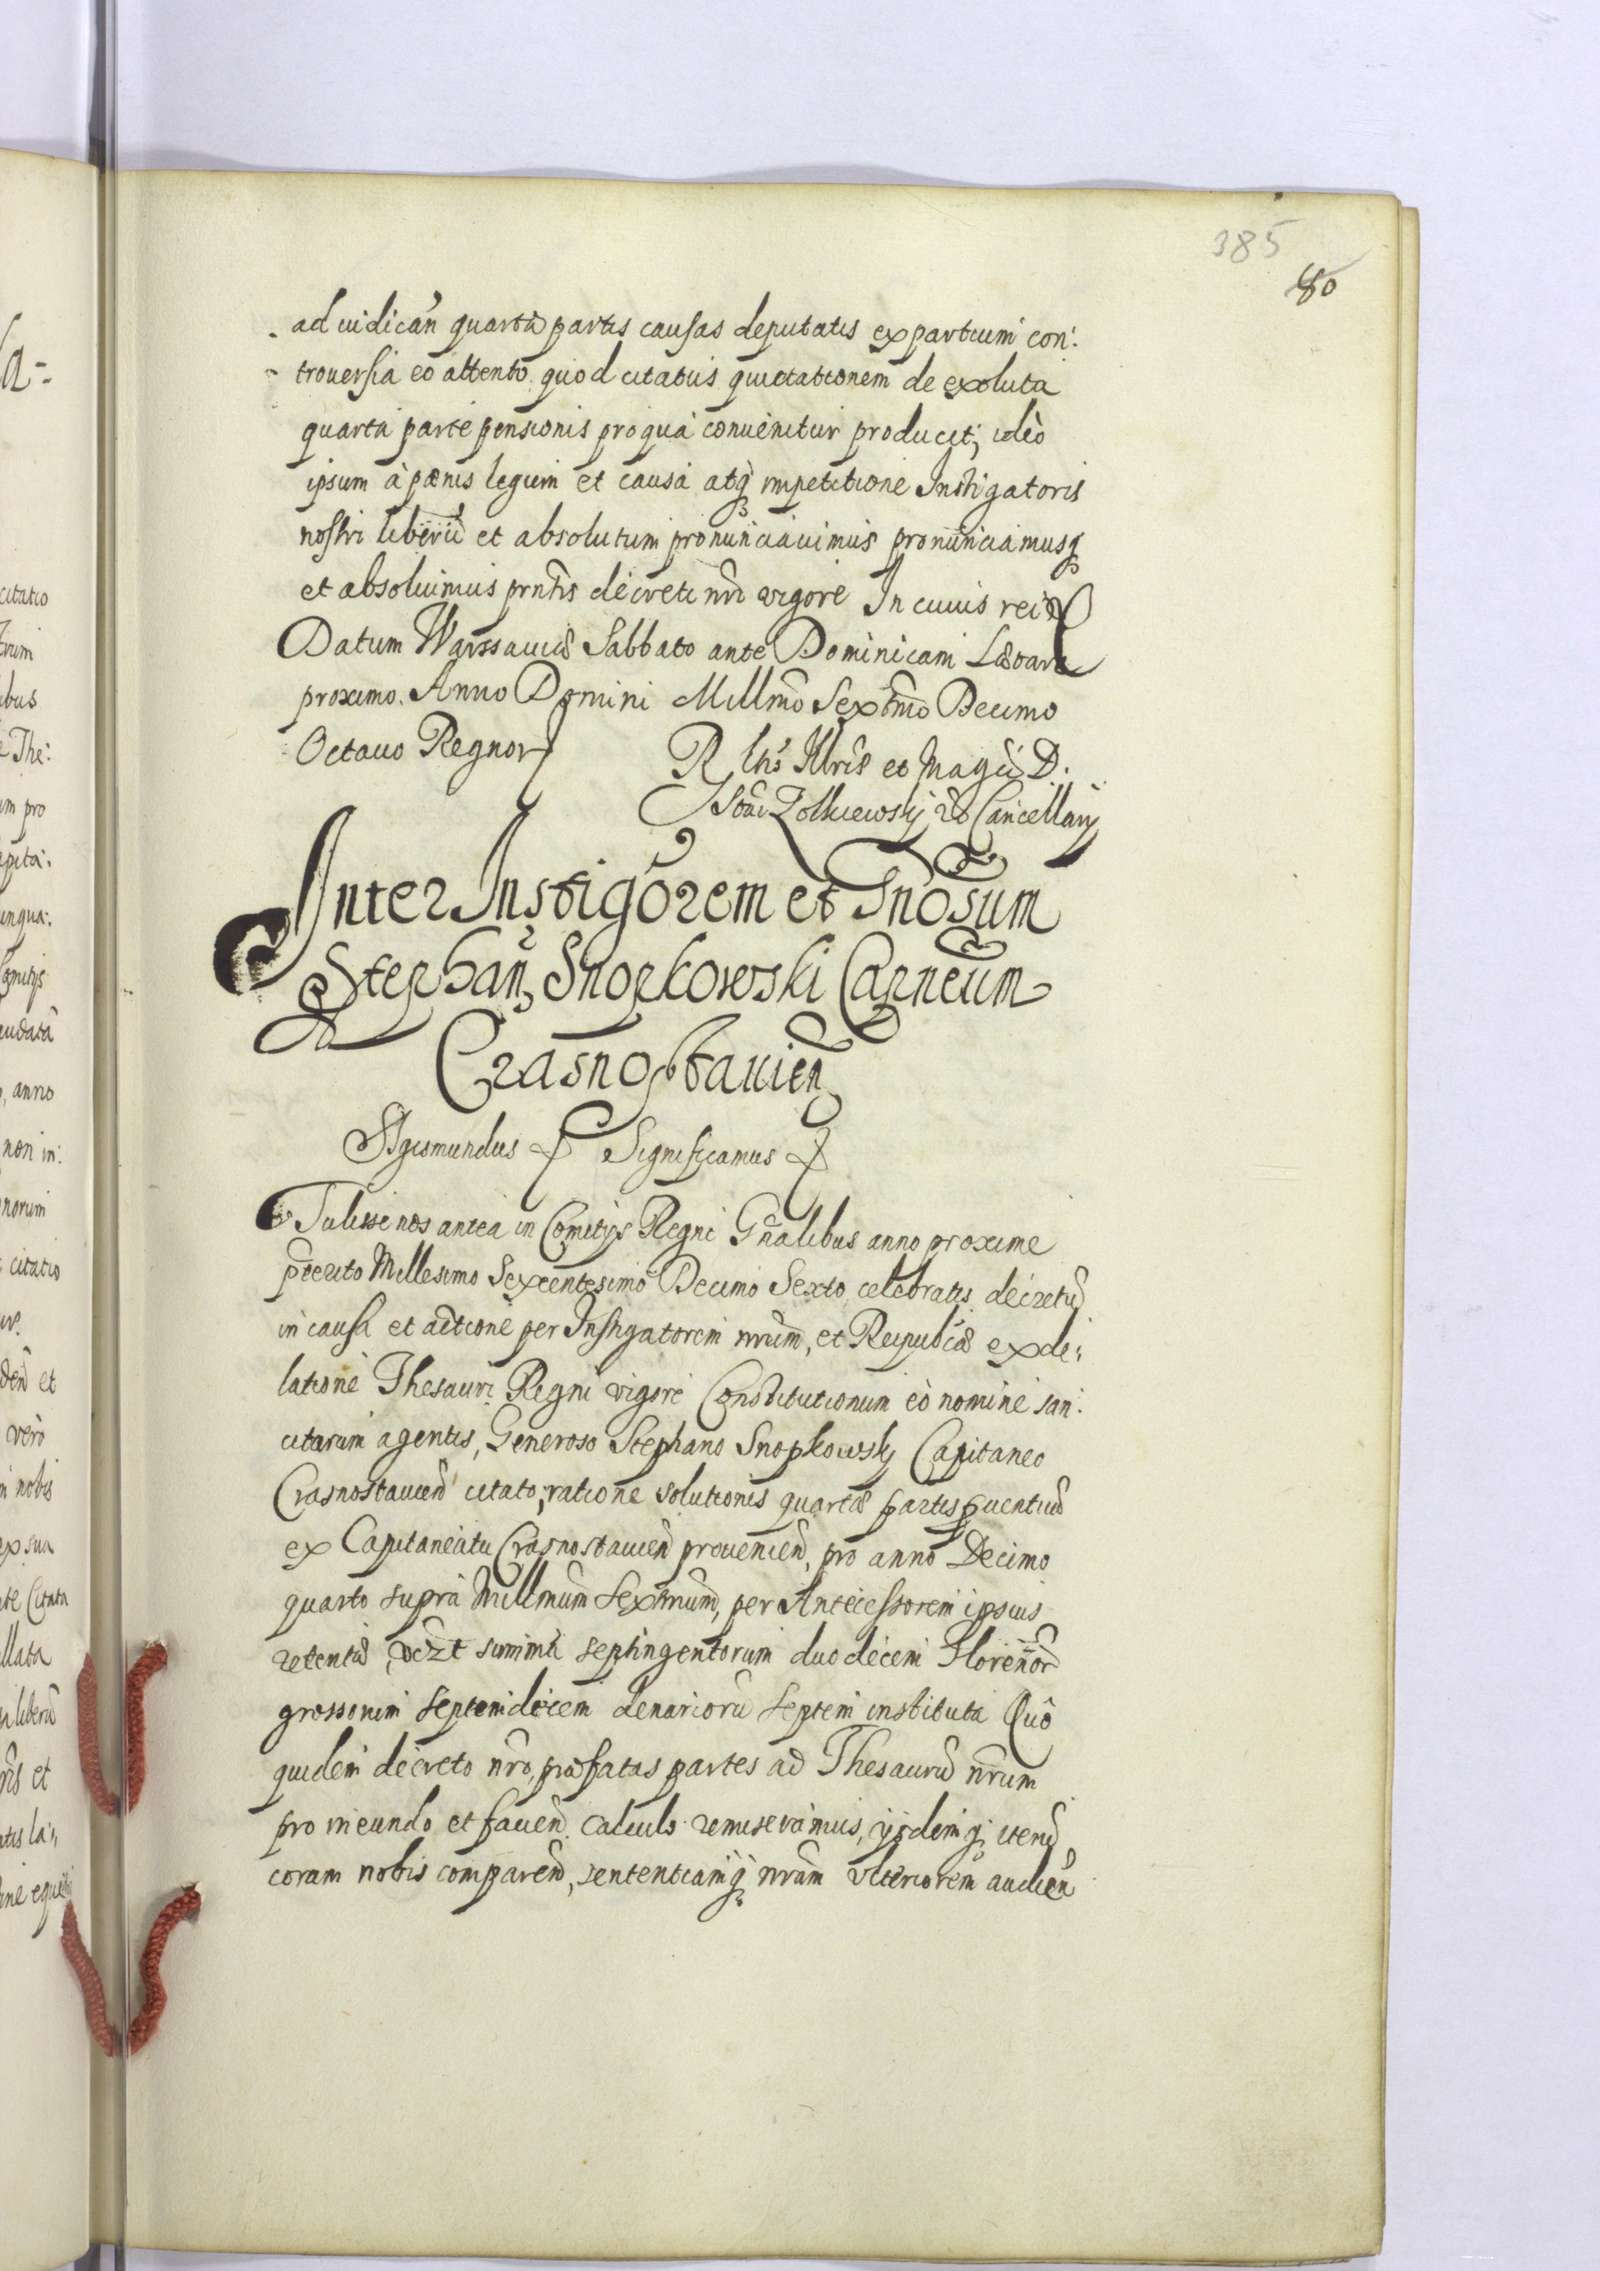 385
80
ad iudicañ quartæ partis causas deputatis ex partium con:
trouersia eo attento quod citatus quietationem de exoluta
quarta parte pensionis pro qua conuenitur producit; ideò
ipsum à pænis legum et causa atq̨ impetitione Instigatoris
nostri liberũ et absolutum pronunciauimus pronunciamusq̨
et absoluimus prñtis decreti nrĩ vigore In cuius rei
Datum Warssauiæ Sabbato ante Dominicam Lætare
proximo. Anno Domini Millmõ Sextmõ Decimo
Octauo Regnor
R lñs Illris et Magci D.
Stãi Zolkiewskij Cancellarij
Inter Instigõrem et Gnosum
Stephañ Snopkowski Capneum
Crasnostauieñ
Sigismundus Significamus
Tulisse nos antea in Comitijs Regni Gñalibus anno proxime
pterito Millesimo Sexcentesimo Decimo Sexto celebratis decretũ
in causa et actione per Instigatorem nrũm, et Reipubcæ ex de:
latione Thesauri Regni vigore Constitutionum eò nomine san:
citarum agentis, Generoso Stephano Snopkowskj Capitaneo
Crasnostauieñ citato, ratione solutionis quartæ partis puentuũ
ex Capitaneatu Crasnostauieñ prouenieñ, pro anno Decimo
quarto supra Millmũm Sextmũm, per Antecessorem ipsius
retentæ, vczt summa septingentorum duodecem Florenor̃
grossorum septemdecem denariorũ septem instituta Quô
quidem decreto nrõ, præfatas partes ad Thesaurũ nrũm
pro ineundo et facieñ calculo remiseramus, ijsdemq̨ iterũ
coram nobis compareñ, sententiamq̨ nrãm vlteriorem audieñ